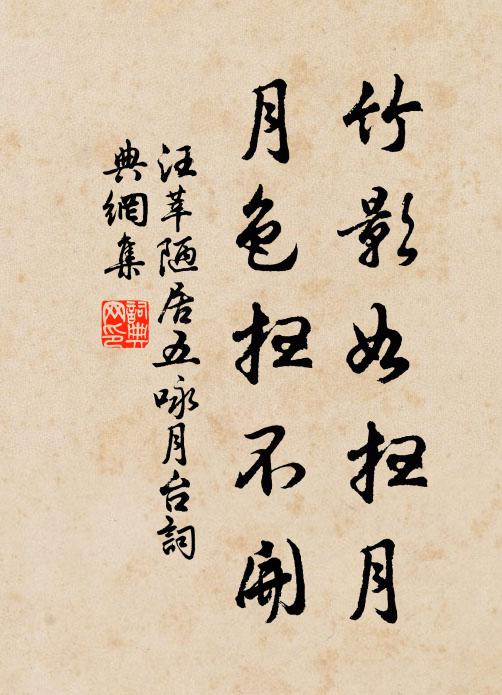 竹影如扫月
月色扫不開
汪莘陋居五咏月台詞
典網集
詞典
网印